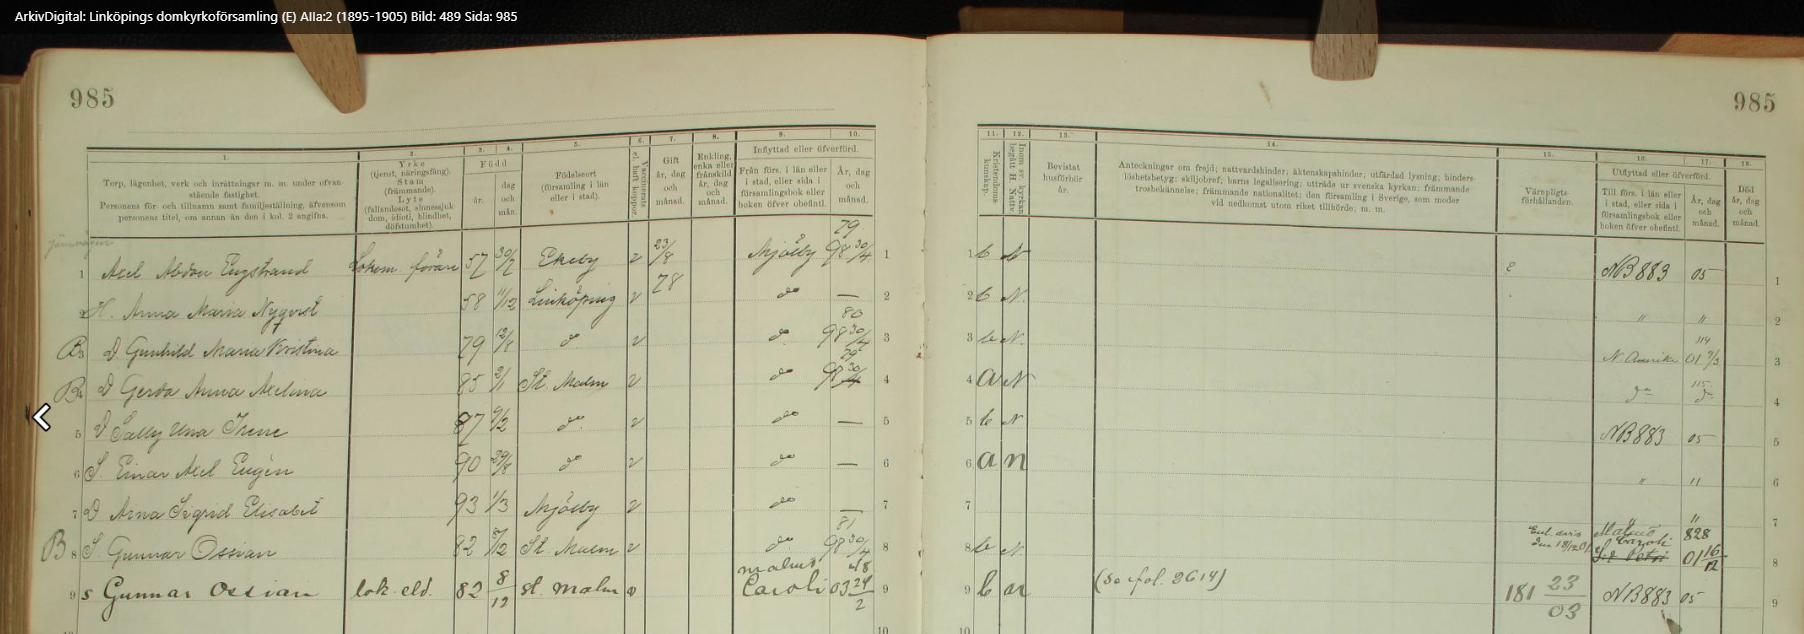 ArkivDigital: Linköpings domkyrkoförsamling (E) AIIa:2 (1895-1905) Bild: 489 Sida: 985
985
985
1. 2. 3. 4. 5. 6. 7. 8. 9. 10.
11. 12. 13. 14. 15. 16. 17. 18.
Torp, lägenhet, verk och inrättningar m. m. under ofvanstående fastighet.
Personens för- och tillnamn samt familjeställning, äfvensom personens titel, om annan än den i kol. 2 angifna.
Yrke
(tjenst, näringsfång).
Stam
(främmande).
Lyte
(fallandesot, sinnessjukdom, idioti, blindhet, döfstumhet).
Född
år.
dag och mån.
Födelseort
(församling i län eller i stad).
Gift
år, dag och månad.
Enkling, enka eller frånskild år, dag och månad.
Inflyttad eller öfverförd.
Från förs. i län eller i stad, eller sida i församlingsbok eller boken öfver obefintl.
År, dag och månad.
Kristendomskunskap.
Bevistat husförhör år.
Anteckningar om frejd; nattvardshinder; äktenskapshinder; utfärdad lysning; hinderslöshetsbetyg; skiljobref; barns legalisering; utträde ur svenska kyrkan; främmande trosbekännelse; främmande nationalitet; den församling i Sverige, som moder vid nedkomst utom riket tillhörde; m. m.
Värnpligtsförhållanden.
Utflyttad eller öfverförd.
Till förs. i län eller i stad, eller sida i församlingsbok eller boken öfver obefintl.
År, dag och månad.
Död år, dag och månad.
1 Axel Abdon Engstrand Lokom. förare 57 30/7 Ekeby v 23/8 78 Mjölby 79 98 30/4 1
1 b N NB 883 05 1
2 H. Anna Maria Nyqvist 58 11/12 Linköping v do — 2
2 b N. " " 2
B 3 D Gunhild Maria Kristina 79 12/1 do v do 80 98 30/4 3
3 b N. N. Amerika 114 01 3
B 4 D Gerda Anna Axelina 85 2/1 St. Malm v do 79 98 30/4 4
4 a N do 115 do 4
5 D Sally Una Irene 87 9/2 do v do — 5
5 b N NB 883 05 5
6 S. Einar Axel Eugén 90 29/8 do v do — 6
6 a n " " 6
7 D Anna Sigrid Elisabet 93 1/3 Mjölby v do — 7
7 " " 7
B 8 S. Gunnar Ossian 82 8/12 St. Malm v do 81 98 30/4 8
8 b N Enl. avis Malmö Caroli 828 S:t Petri 01 16/12 8
9 s Gunnar Ossian lok. eld. 82 8/12 st. malm v malmö Caroli 48 03 24/2 9
9 b n (se fol. 2614) 181 23/03 NB 883 05 9
10 10